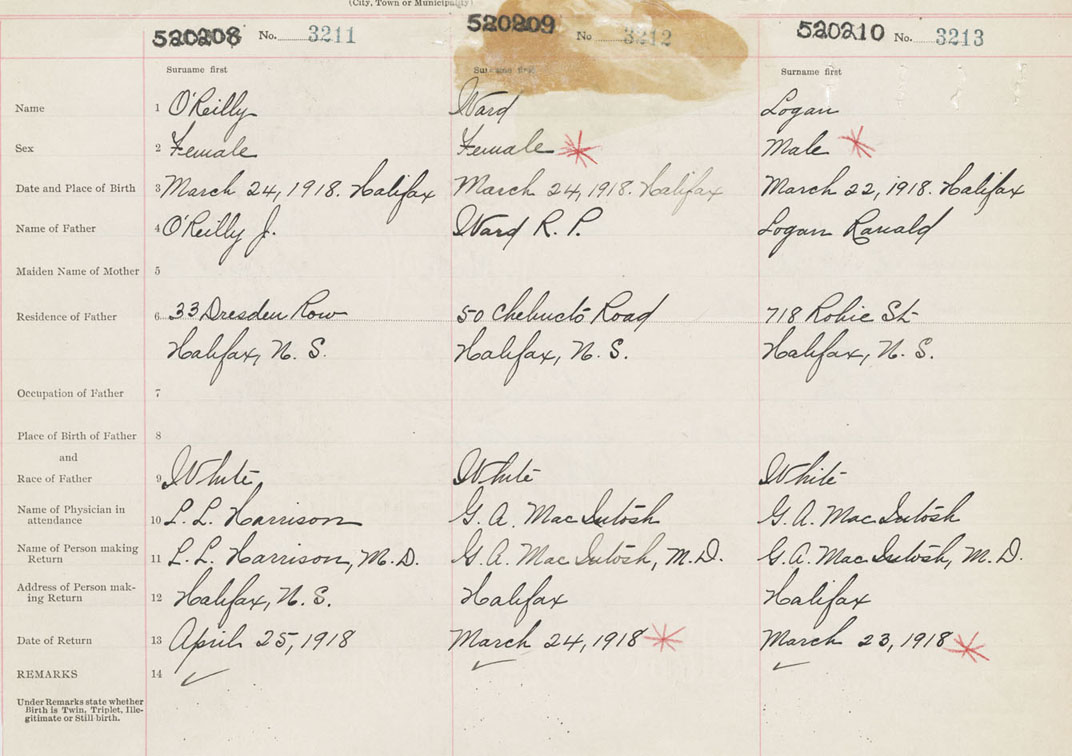 (City, Town or Municipality)
520208 No. 3211 520209 No 3212 520210 No. 3213
Surname first Surname first Surname first
Name 1 O'Reilly Ward Logan
Sex 2 Female Female Male
Date and Place of Birth 3 March 24, 1918. Halifax March 24, 1918. Halifax March 22, 1918. Halifax
Name of Father 4 O'Reilly J. Ward R. P. Logan Ranald
Maiden Name of Mother 5
Residence of Father 6 33 Dresden Row 50 Chebucto Road 718 Robie St
Halifax, N. S. Halifax, N. S. Halifax, N. S.
Occupation of Father 7
Place of Birth of Father 8
and
Race of Father 9 White White White
Name of Physician in
attendance 10 L. L. Harrison G. A. MacIntosh G. A. MacIntosh
Name of Person making
Return 11 L. L. Harrison, M. D. G. A. MacIntosh, M. D. G. A. MacIntosh, M. D.
Address of Person mak-
ing Return 12 Halifax, N. S. Halifax Halifax
Date of Return 13 April 25, 1918 March 24, 1918 March 23, 1918
REMARKS 14
Under Remarks state whether
Birth is Twin, Triplet, Ille-
gitimate or Still birth.